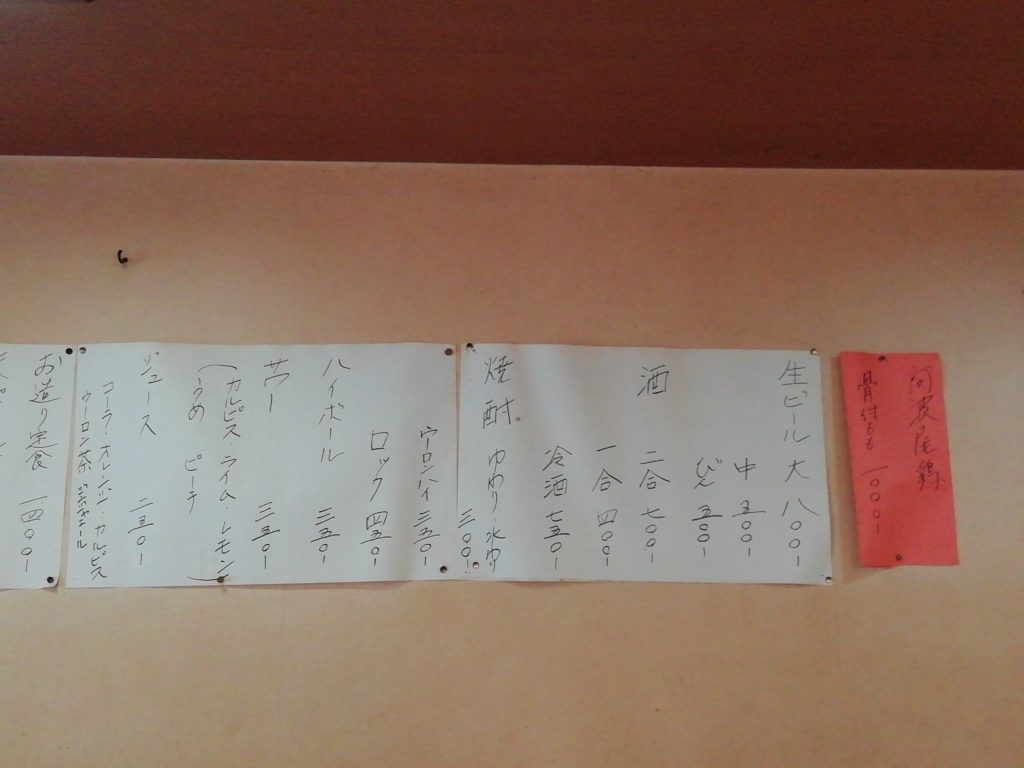 阿波尾鶏
骨付もも 一〇〇〇-
生ビール 大 八〇〇-
中 五〇〇-
びん 五〇〇-
酒 二合 七〇〇-
一合 四〇〇-
冷酒 七五〇-
焼酎 ゆわり・水わり
三〇〇-
ウーロンハイ 三五〇-
ロック 四五〇-
ハイボール 三五〇-
サワー 三五〇-
(カルピス ライム・レモン
うめ ピーチ)
ジュース 二五〇-
コーラ・オレンジ・カルピス
ウーロン茶・ジンジャエール
お造り定食 一四〇〇-